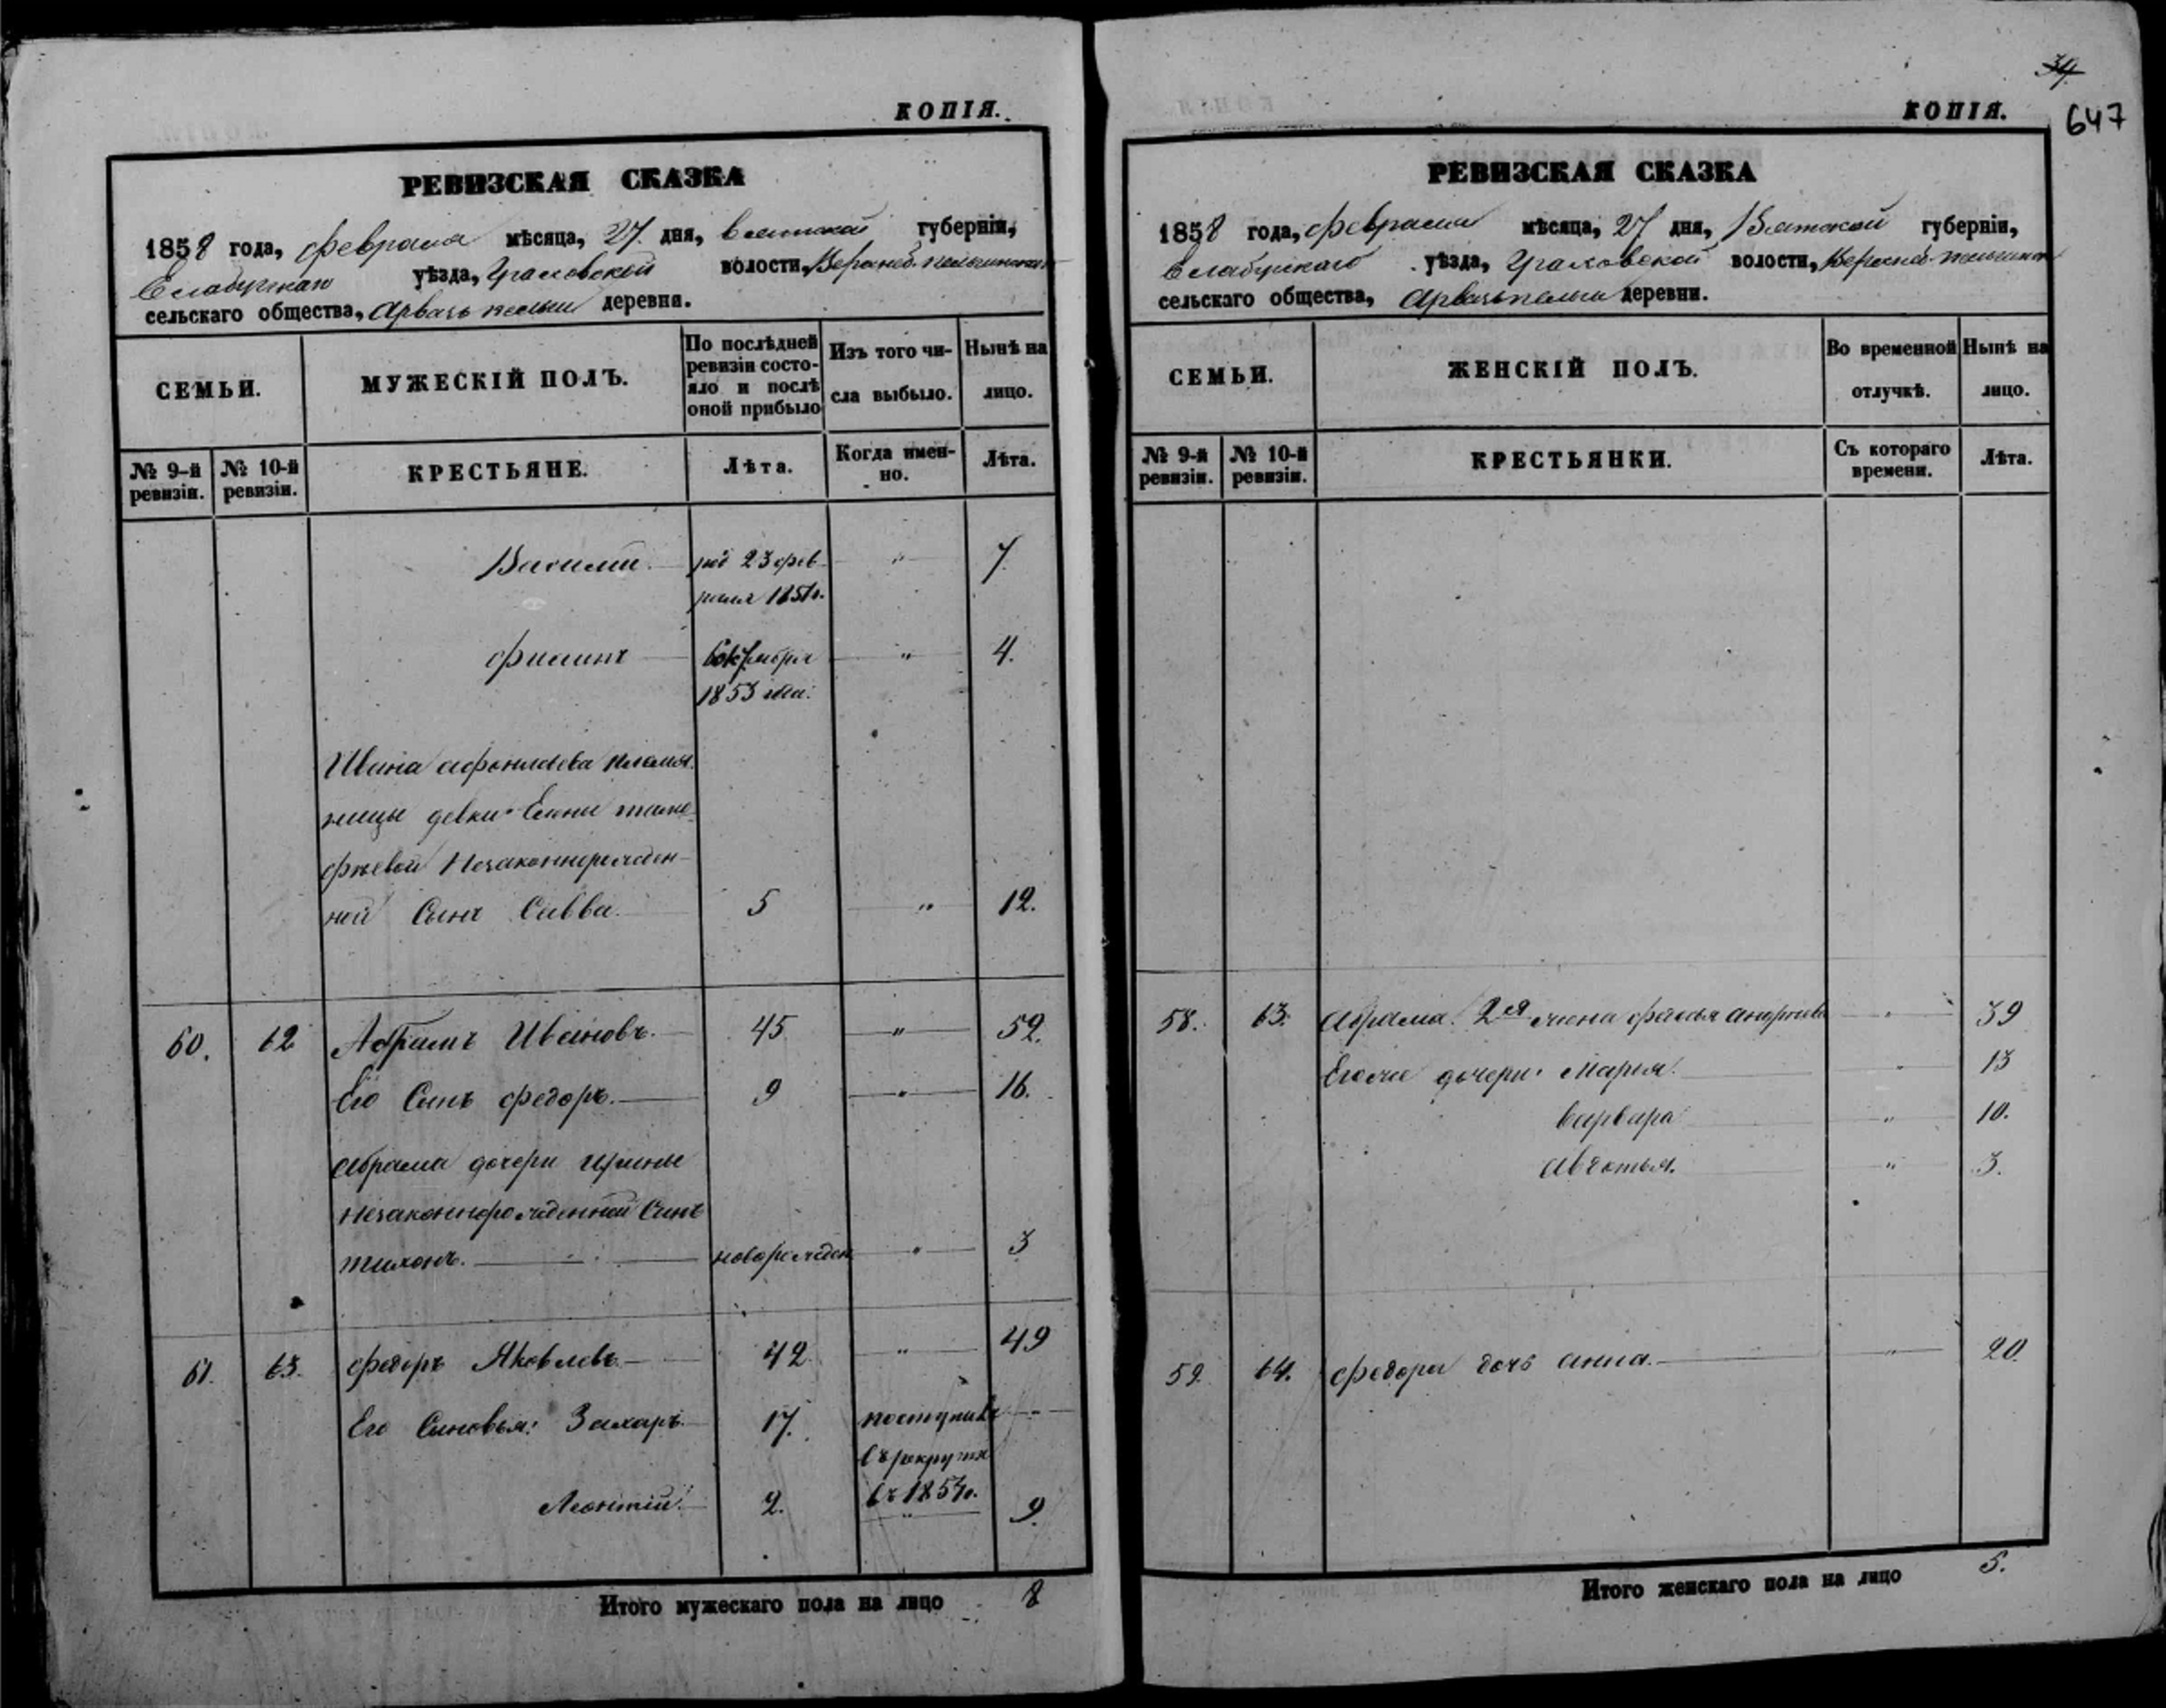 КОПІЯ.
РЕВИЗСКАЯ СКАЗКА
1858 года, февраля мѣсяца, 27 дня, Вятской губерніи,
Елабужскаго уѣзда, Граховской волости,
сельскаго общества, деревни.
СЕМЬИ.
МУЖЕСКІЙ ПОЛЪ.
По послѣдней
ревизіи состо-
яло и послѣ
оной прибыло
Изъ того чи-
сла выбыло.
Нынѣ на
лицо.
№ 9-й
ревизіи.
№ 10-й
ревизіи.
КРЕСТЬЯНЕ.
Лѣта.
Когда имен-
но.
Лѣта.
Василій род 23 фев " 7
раля 1851г.
Филипъ 6 октября " 4.
1853
Ивана племян
ницы девки Незаконнорожден
ной Сынъ Савва. 5 " 12.
60. 62 Абрамъ Ивановъ. 45 " 52.
Его Сынъ федоръ. 9 " 16.
Абрама дочери Ирины
незаконнорожденной Сынъ
тихонъ. новорожден " 3
61. 63. федоръ Яковлевъ 42 " 49
Его Сыновья: Захаръ 17. поступилъ "
въ рекруты
въ 1854г.
Леонтій 2. " 9.
Итого мужескаго пола на лицо 8
34
647
КОПІЯ.
РЕВИЗСКАЯ СКАЗКА
1858 года, февраля мѣсяца, 27 дня, Вятской губерніи,
Елабужскаго уѣзда, Граховской волости,
сельскаго общества, деревни.
СЕМЬИ.
ЖЕНСКІЙ ПОЛЪ.
Во временной
отлучкѣ.
Нынѣ на
лицо.
№ 9-й
ревизіи.
№ 10-й
ревизіи.
КРЕСТЬЯНКИ.
Съ котораго
времени.
Лѣта.
58. 63. Абрама 2я жена " 39
Егоже дочери: Марья. " 13
варвара " 10.
Авдотья. " 3.
59. 64. федора дочь анна. " 20.
Итого женскаго пола на лицо 5.